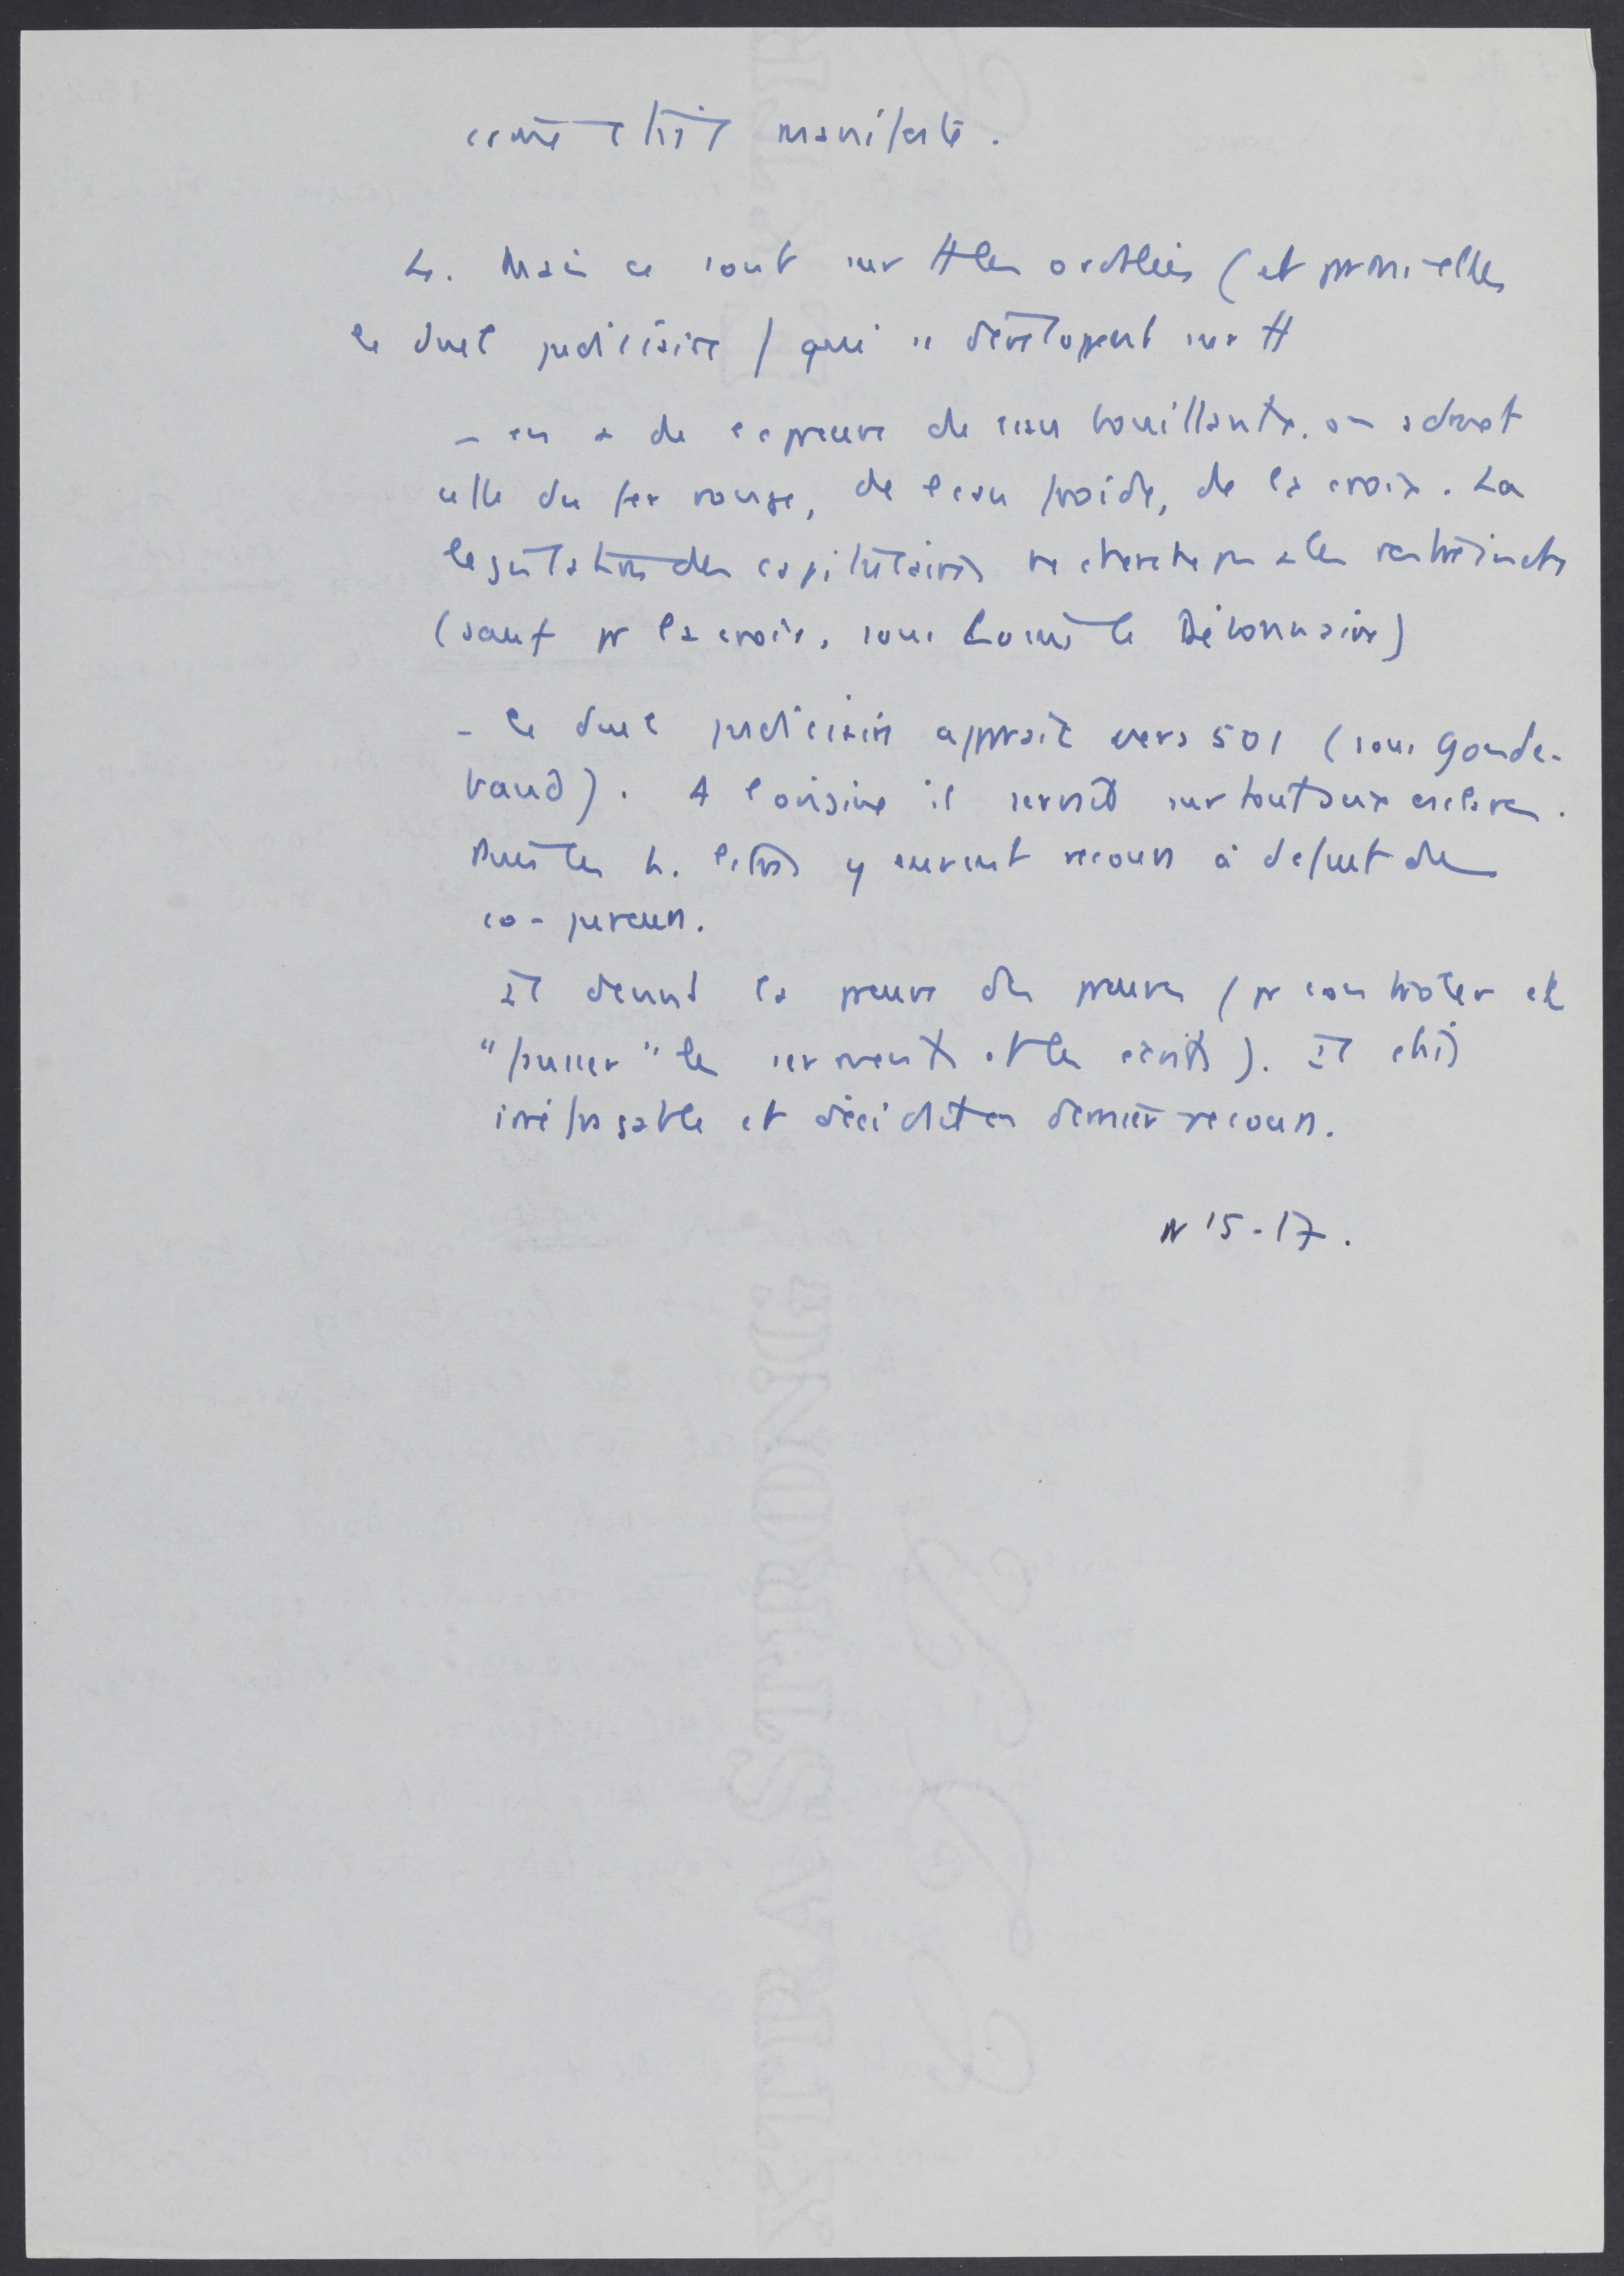 était manifeste.
4. Mais ce sont surtt les ordalies (et parmi elles
le duel judiciaire) qui se développent surtt
- en + de l'épreuve de l'eau bouillante, on admet
celle du fer rouge, de l'eau froide, de la croix. La
législation des capitulaires ne cherche pas à les restreindre
(sauf pr la croix, sous Louis le Débonnaire)
- le duel judiciaire apparaît vers 501 (sous Gonde-
baud). A l'origine il servait surtout aux esclaves.
Puis les h. libres y eurent recours à défaut de
co-jureurs.
Il devint la preuve des preuves (pr contrôler et
"fausser" les serments et les écrits). Il était
irréfragable et décidait en dernier recours.
15-17.